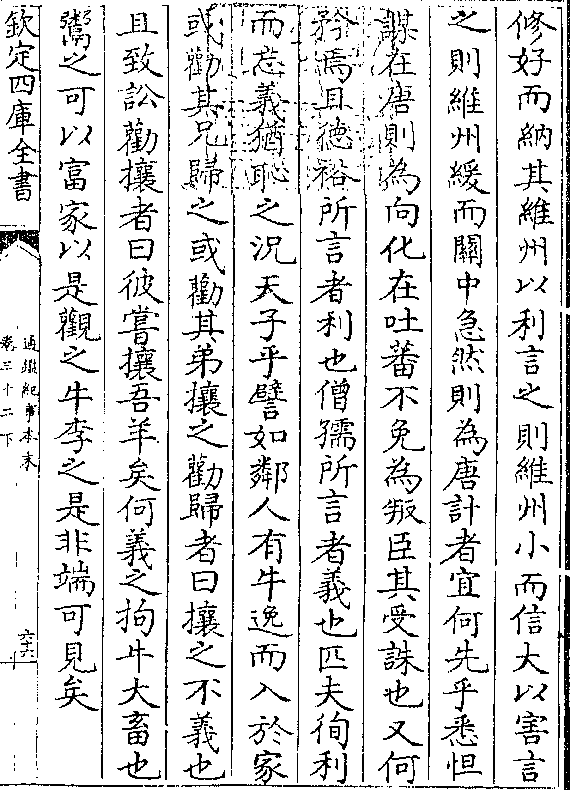 修好而納其維州以利言之則維州小而信大以害言
之則維州緩而關中急然則為唐計者宜何先乎悉怛
謀在唐則為向化在吐蕃不免為叛臣其受誅也又何
矜焉且徳裕所言者利也僧孺所言者義也匹夫徇利
而忘義猶恥之況天子乎譬如鄰人有牛逸而入於家
或勸其兄歸之或勸其弟攘之勸歸者曰攘之不義也
且致訟勸攘者曰彼嘗攘吾羊矣何義之拘牛大畜也
鬻之可以富家以是觀之牛李之是非端可見矣
欽定四庫全書
通鑑紀事本末
卷三十二下
六十六